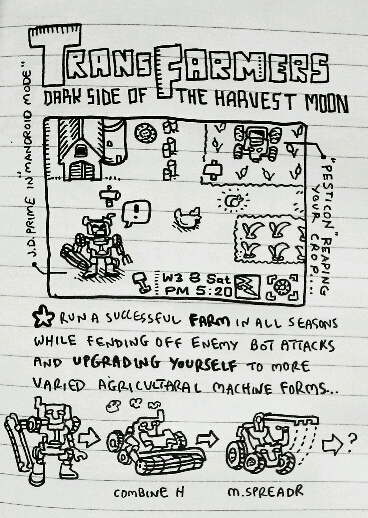 TRANSFARMERS
DARK SIDE OF THE HARVEST MOON
J.D. PRIME IN "MANDROID MODE"
!
"PESTICON" REAPING
YOUR CROP...
W3 8 Sat
PM 5:20
RUN A SUCCESSFUL FARM IN ALL SEASONS
WHILE FENDING OFF ENEMY BOT ATTACKS
AND UPGRADING YOURSELF TO MORE
VARIED AGRICULTARAL MACHINE FORMS...
?
COMBINE H
M.SPREADR